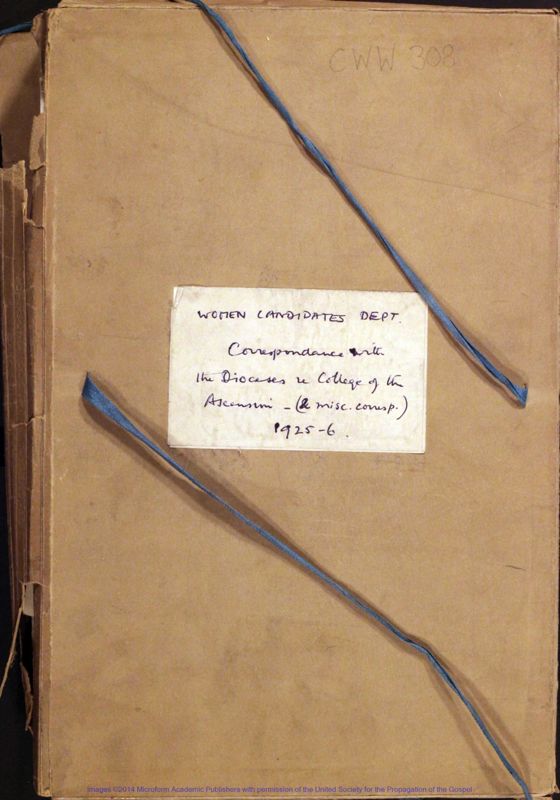 CWW 308
WOMEN CANDIDATES DEPT.
Correspondance with
the Dioceses re College of the
Ascension - (& misc. corresp.)
1925-6.
Images ©2014 Microform Academic Publishers with permission of the United Society for the Propagation of the Gospel